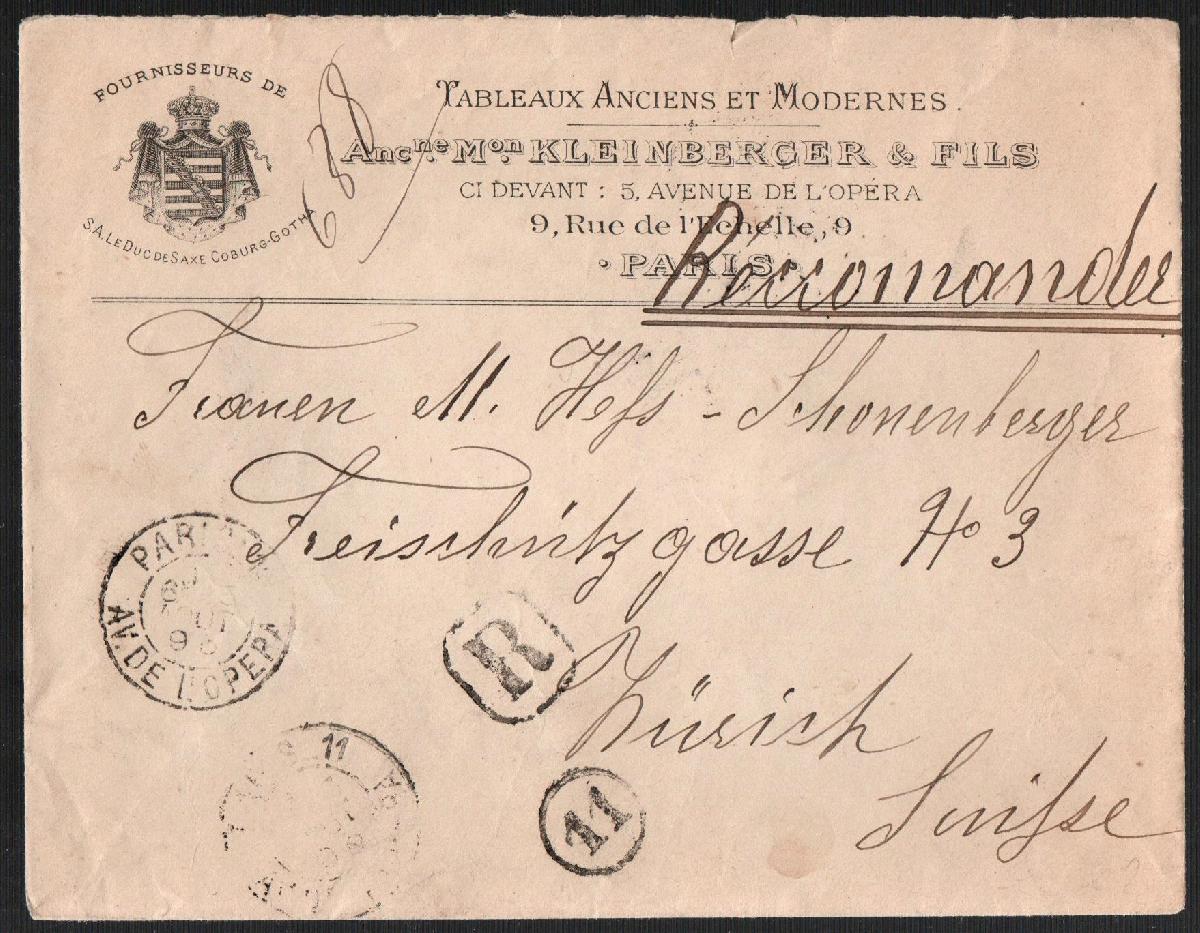 FOURNISSEURS DE
S.A. LE DUC DE SAXE COBURG-GOTHA
TABLEAUX ANCIENS ET MODERNES.
Ancne Mon KLEINBERGER & FILS
CI DEVANT : 5, AVENUE DE L'OPÉRA
9, Rue de l'Echelle, 9
• PARIS •
Recomander
Frauen M. Hess - Schonenberger
Freischützgasse No 3
Zürich
Suisse
PARIS
AOUT
AV. DE L'OPERA
R
11
11